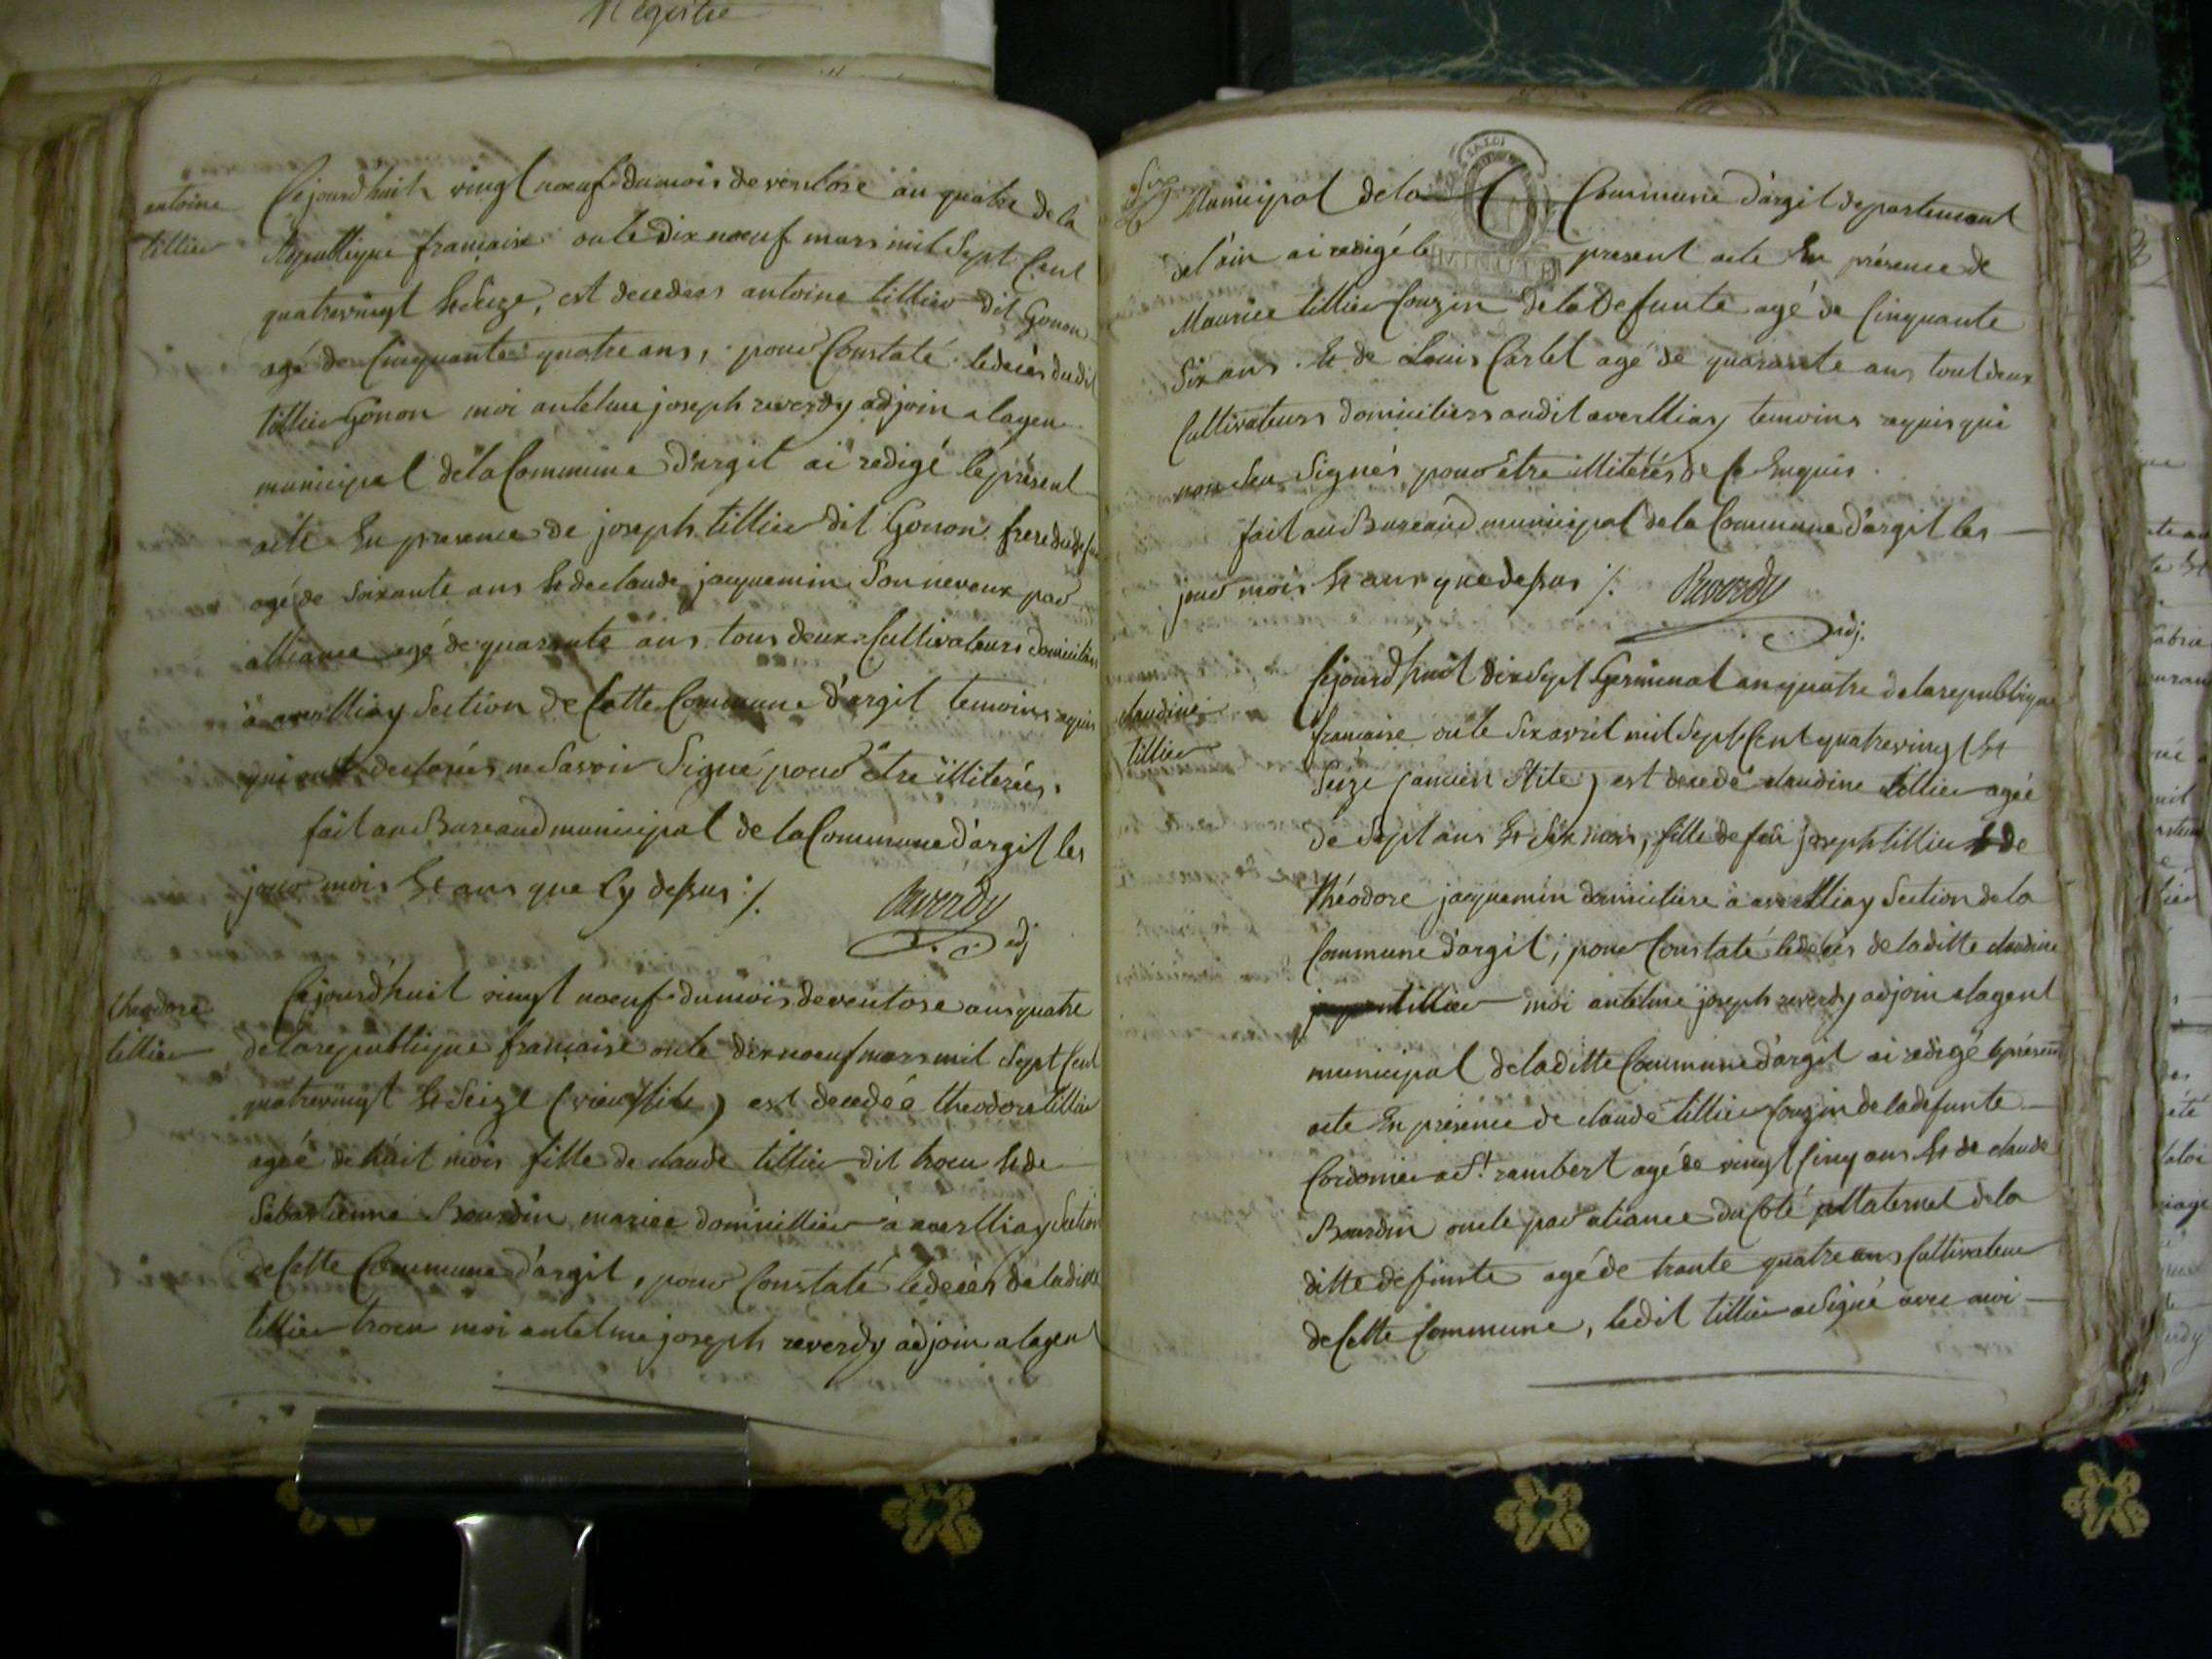 Registre
antoine
tillier
Cejourdhuit vingt noeuf du mois de ventose an quatre de la
Republique francaise ou le dix noeuf mars mil Sept Cent
quatrevingt et Seize, est decedes antoine tillier dit Gonon
agé de Cinquante quatre ans, pour Constaté le decès dudit
tillier Gonon moi antelme joseph reverdy adjoin a lagen
municipal de la Commune d'argit ai redigé le présent
acte En presence de joseph tillier dit Gonon frere du
agé de Soixante ans et de claude jacquemin Son neveux par
alliance agé de quarante ans tous deux Cultivateurs domiciliés
à averlliay Section de Cette Commune d'argit temoins
qui ont declarés ne Savoir Signé pour être illiterées.
fait au Bureaud municipal de la Commune d'argit les
jour mois et ans que Cy dessus ./.
Reverdy
adj
theodore
tillier
Cejourdhuit vingt noeuf du mois de ventose ans quatre
de la republique francaise ou le dix noeuf mars mil Sept Cent
quatrevingt et Seize (vieu Stile) est decedéé theodore tillier
agéé de huit mois fille de claude tillier dit troeu et de
Sebastienne Bourdin mariee domicillier à averlliay Section
de Cette Commune d'argit, pour Constaté le decès de laditte
tillier troeu moi antelme joseph reverdy adjoin a lagent
Six
Municipal de la Commune d'argit departement
MINUTE
de l'ain ai redigé le present acte En présence de
Maurice tillier Couzin de la Defunte agé de Cinquante
Six ans. Et de Louis Carlet agé de quarante ans tout deux
Cultivateurs domiciliers audit averlliay temoins qui
Signés pour être illiterés de Ce Enquis.
fait au Bureaud municipal de la Commune d'argit les
jour mois et ans que dessus ./. Reverdy
adj.
claudine
tillier
Cejourdhuit dix Sept Germinal an quatre de la republique
francaise ou le Six avril mil Sept Cent quatrevingt et
Seize (ancien Stile) est decedé claudine tillier agéé
de Sept ans et Six mois, fille de feu joseph tillier et de
théodore jacquemin domiciliere à averlliay Section de la
Commune d'argit, pour Constaté le decès de laditte claudine
tillier moi antelme joseph reverdy adjoin a lagent
municipal de laditte Commune d'argit ai redigé le présent
acte En présence de claude tillier Couzin de la defunte
Cordonier a St. rambert agé de vingt Cinq ans et de claude
Bourdin oncle par aliance du Coté de la
ditte defunte agé de trante quatre ans Cultivateur
de Cette Commune, ledit tillier a Signé avec moi